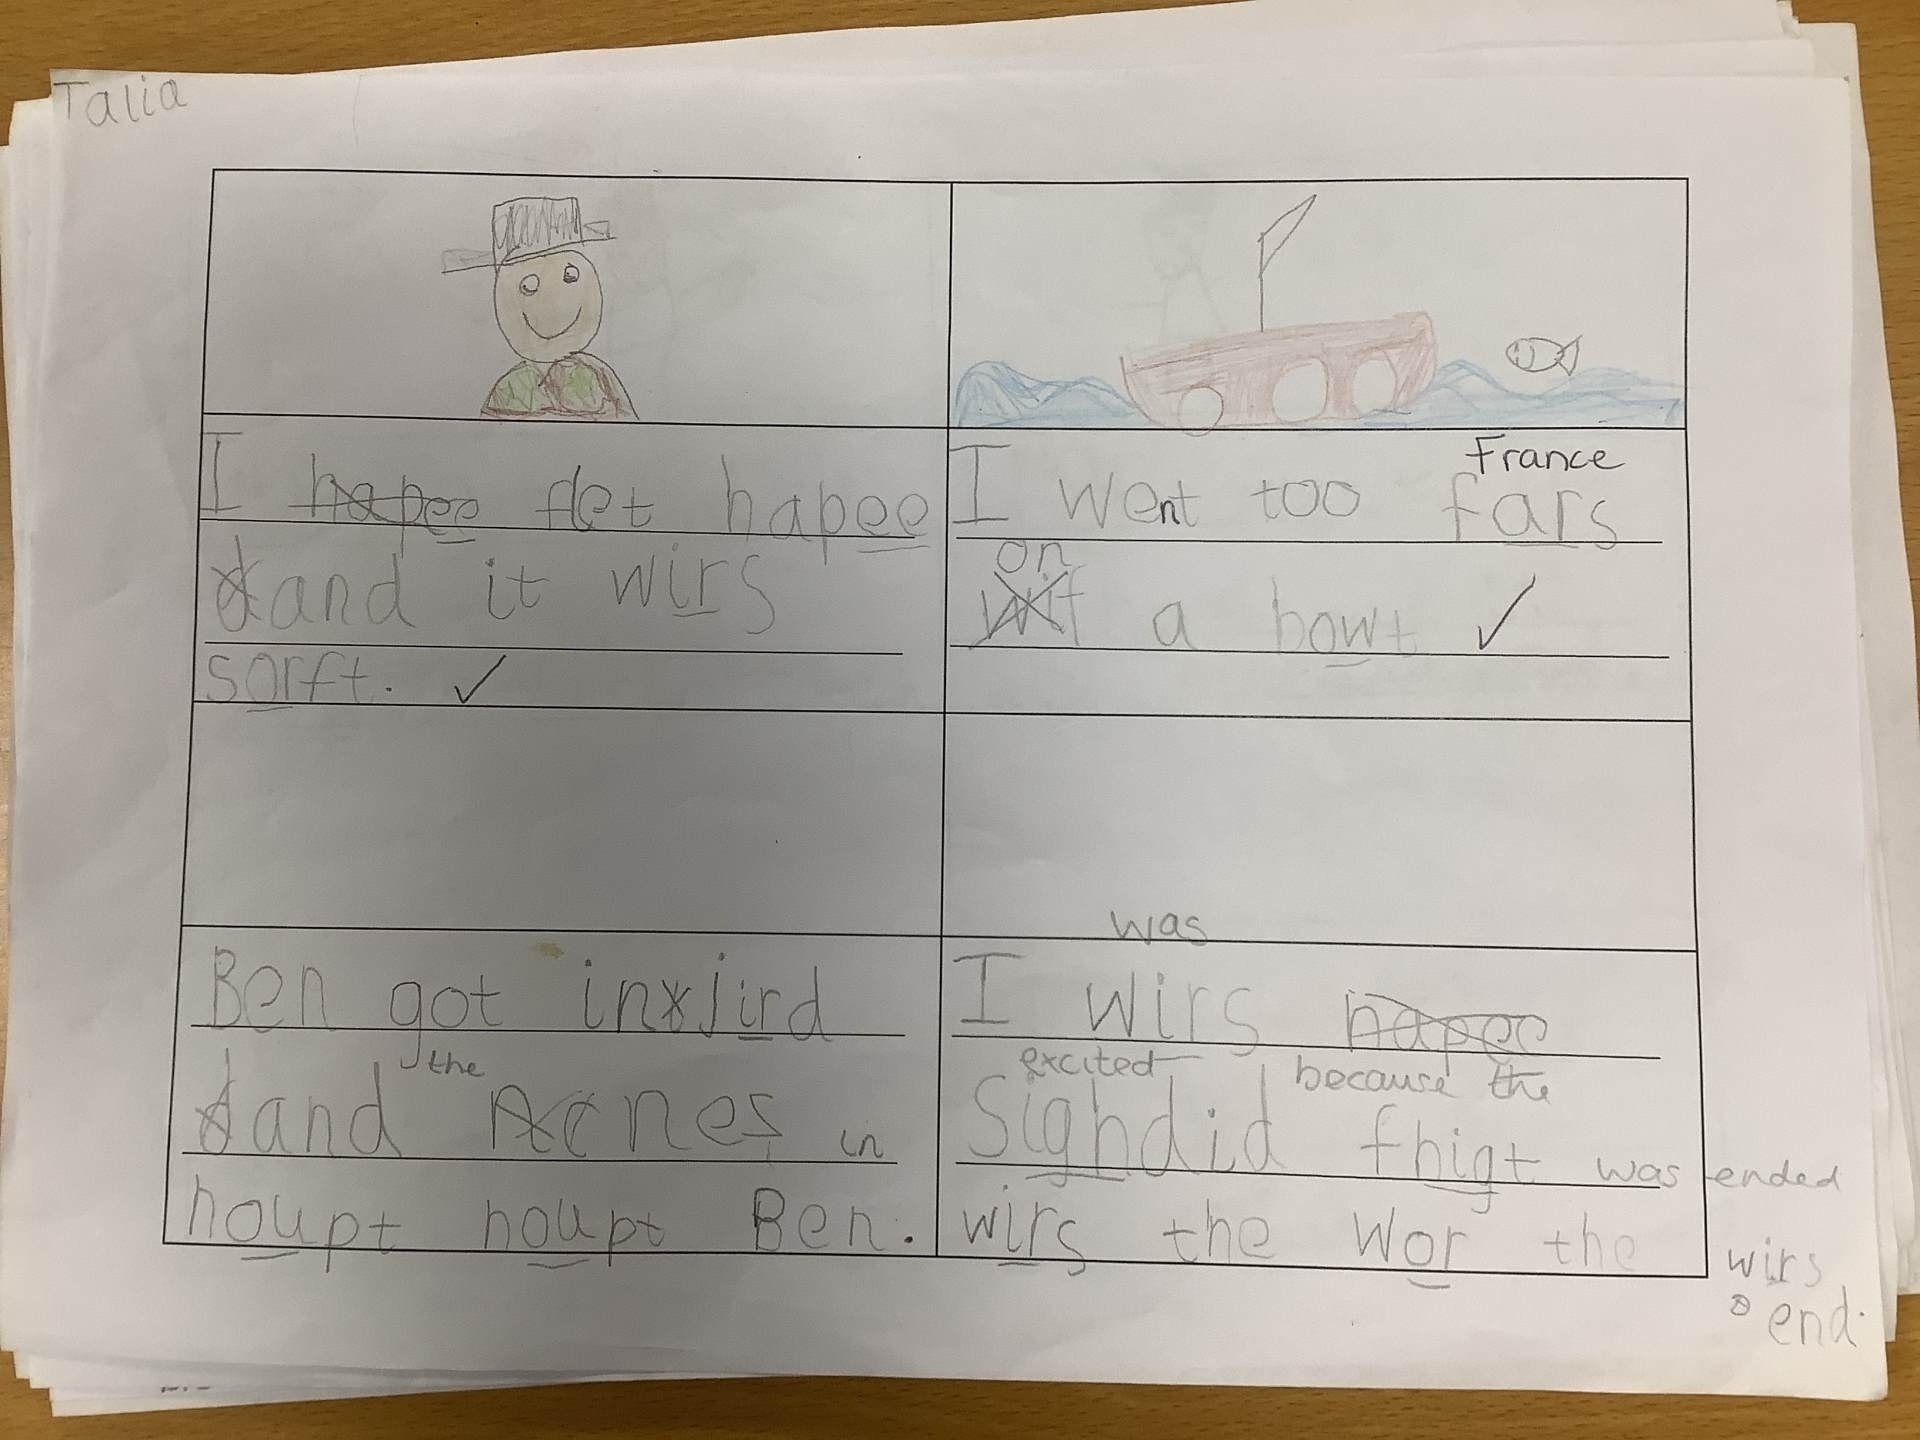 Talia
I hapee flet hapee
and it wirs
sorft. ✓
France
I went too fars
on
wit a bowt ✓
Ben got inxjird
the
and Acnes in
houpt houpt Ben.
was
I wirs hapee
excited because the
Sighdid fhigt was ended
wirs the wor the wirs
end.